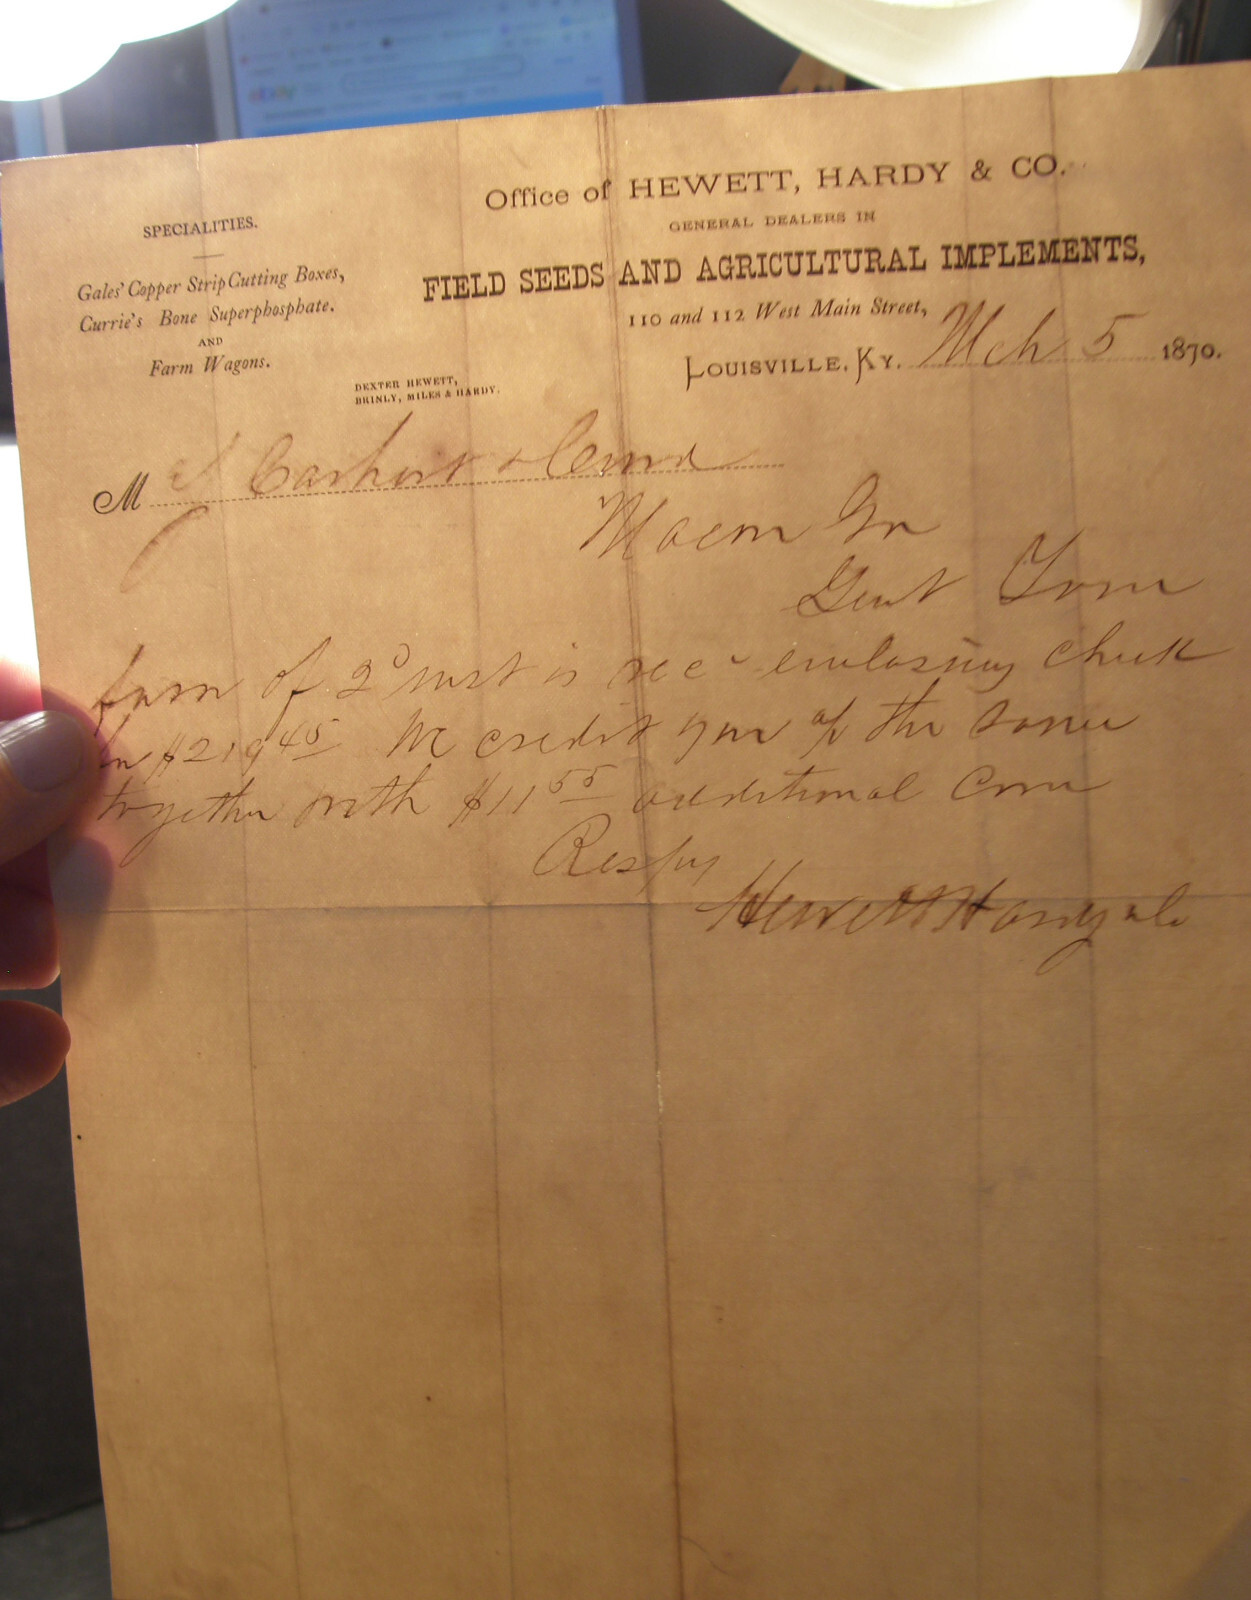 Office of HEWETT, HARDY & CO.
GENERAL DEALERS IN
FIELD SEEDS AND AGRICULTURAL IMPLEMENTS,
110 and 112 West Main Street,
LOUISVILLE, KY. Mch 5 1870.
SPECIALITIES.
Gales' Copper Strip Cutting Boxes,
Currie's Bone Superphosphate.
AND
Farm Wagons.
DEXTER HEWETT,
BRINLY, MILES & HARDY.
M Carhart & Curd
Macon Ga
Gent Your
favor of 2d inst is recd enclosing check
for $219 45 We credit you of the same
together with $11 55 additional Com
Respy
Hewett Hardy & Co
ebay